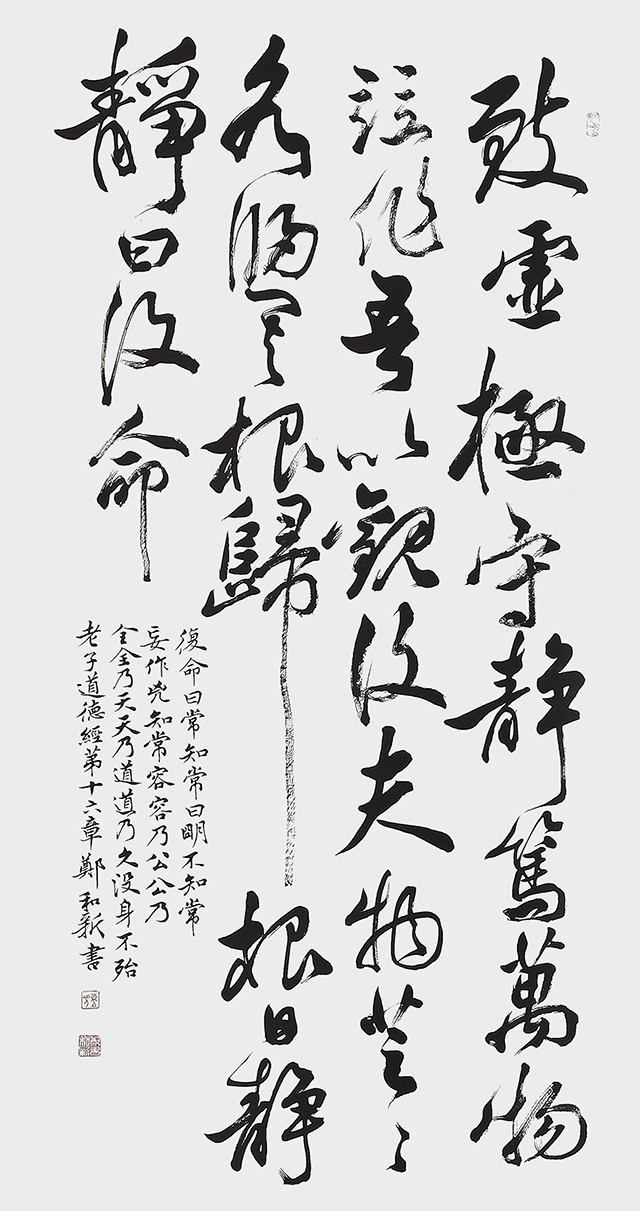 致虛極守靜篤萬物
並作吾以觀復夫物芸〻
各歸其根歸根曰靜
靜曰復命
復命曰常知常曰眀不知常
妄作兇知常容容乃公公乃
全全乃天天乃道道乃久沒身不殆
老子道德經第十六章鄭和新書